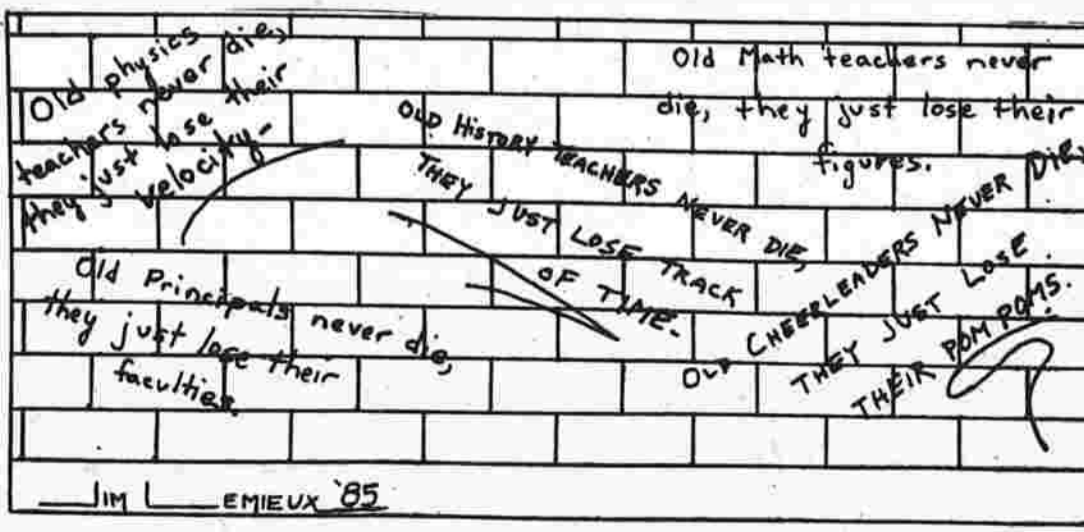 Old physics
teachers never die,
they just lose their
velocity-
Old Math teachers never
die, they just lose their
figures.
OLD HISTORY TEACHERS NEVER DIE,
THEY JUST LOSE TRACK
OF TIME.
OLD CHEERLEADERS NEVER DIE,
THEY JUST LOSE
THEIR POM POMS.
Old Principals never die,
they just lose their
faculties.
JIM LEMIEUX '85